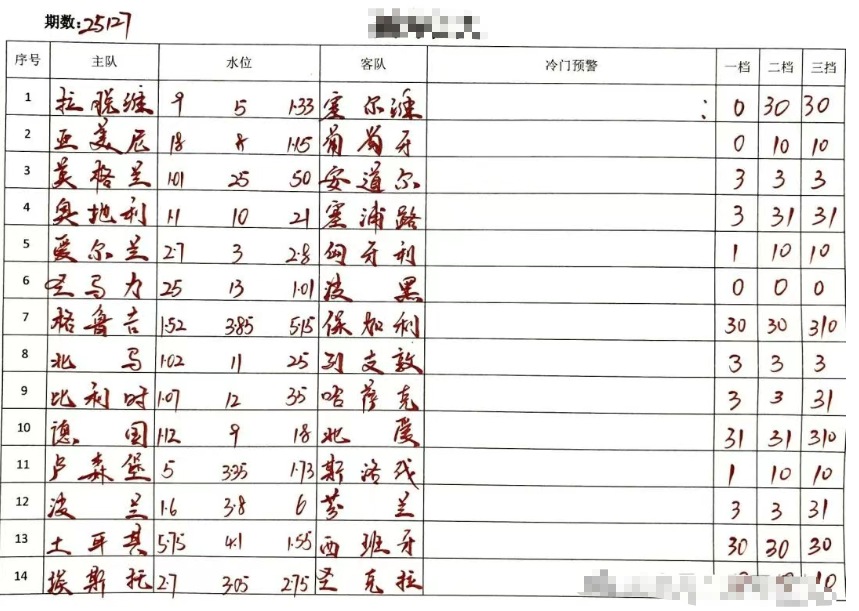 期数:25127
序号 主队 水位 客队 冷门预警 一档 二档 三挡
1 拉脱维 9 5 1.33 塞尔维 : 0 30 30
2 亚美尼 18 8 1.15 葡萄牙 0 10 10
3 英格兰 1.01 25 50 安道尔 3 3 3
4 奥地利 1.1 10 21 塞浦路 3 31 31
5 爱尔兰 2.7 3 2.8 匈牙利 1 10 10
6 圣马力 25 13 1.01 波黑 0 0 0
7 格鲁吉 1.52 3.85 5.15 保加利 30 30 310
8 北马 1.02 11 25 列支敦 3 3 3
9 比利时 1.07 12 35 哈萨克 3 3 31
10 德国 1.12 9 18 北爱 31 31 310
11 卢森堡 5 3.35 1.73 斯洛伐 1 10 10
12 波兰 1.6 3.8 6 芬兰 3 3 31
13 土耳其 5.75 4.1 1.55 西班牙 30 30 30
14 埃斯托 2.7 3.05 2.75 圣克拉 10